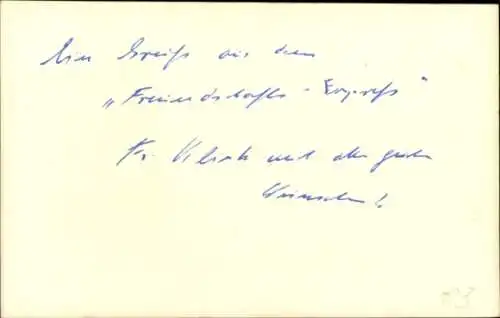 Ein Gruß aus dem
„Freundschafts-Express"
Fr. mit allen guten
Wünschen!